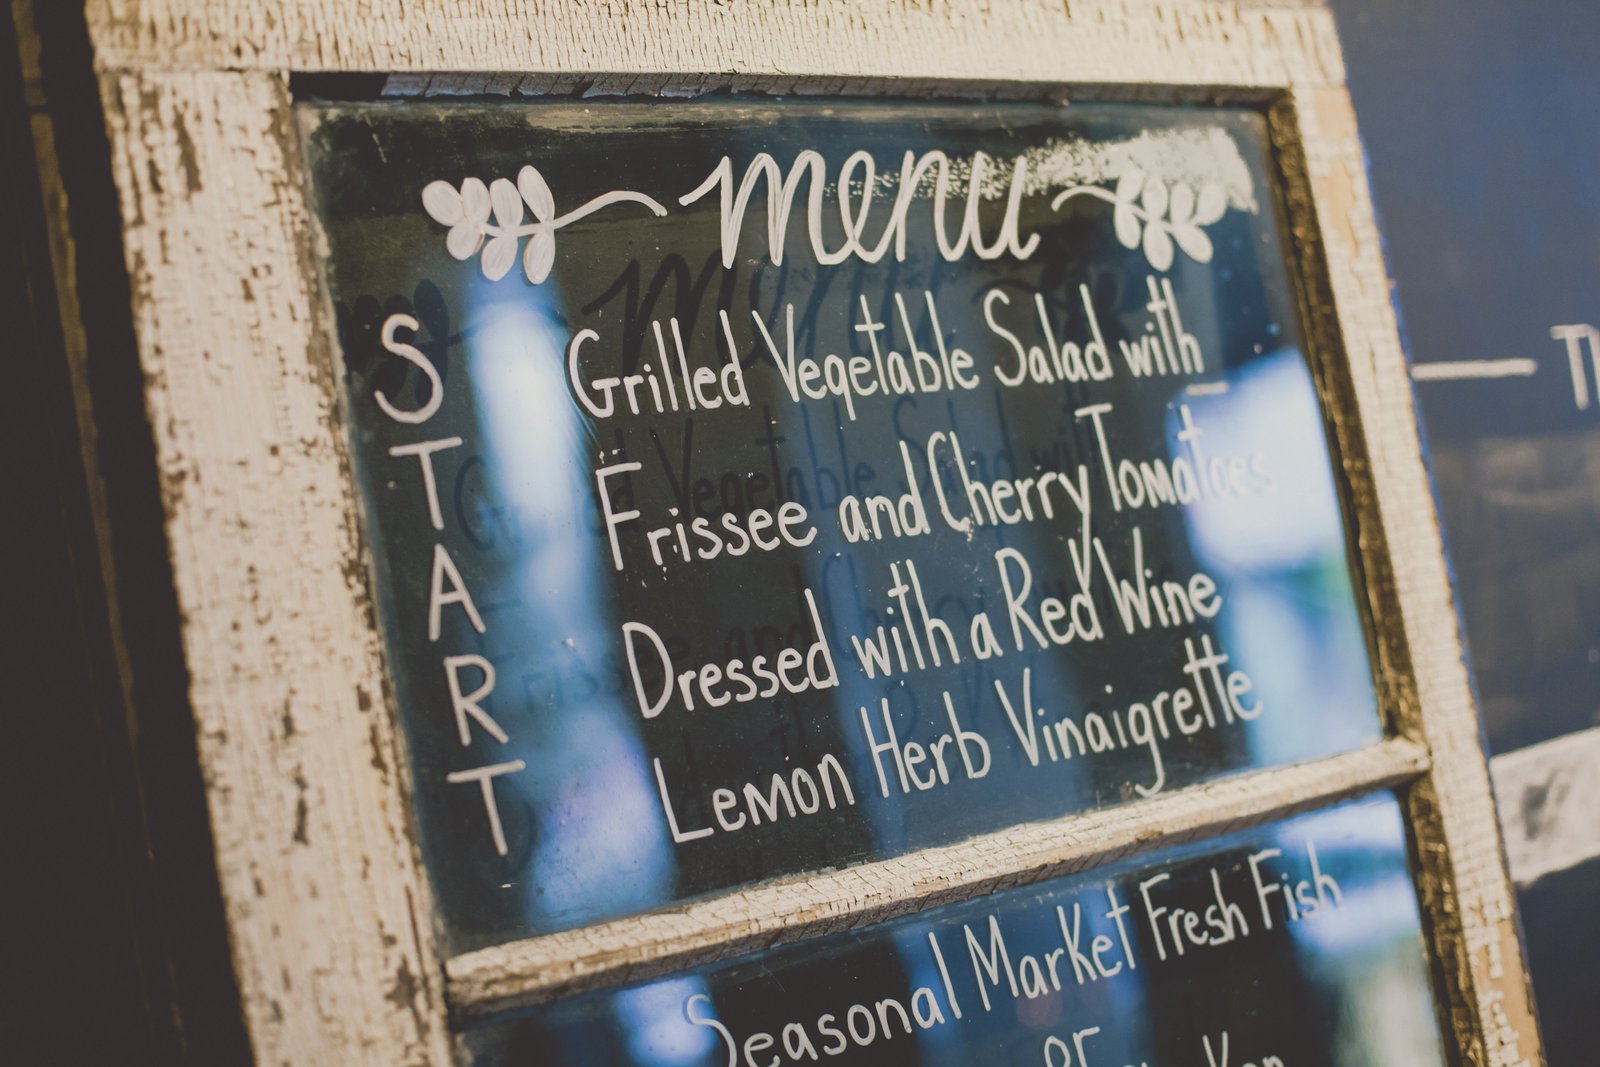 menu
START
Grilled Vegetable Salad with
Frissee and Cherry Tomatoes
Dressed with a Red Wine
Lemon Herb Vinaigrette
Seasonal Market Fresh Fish
or